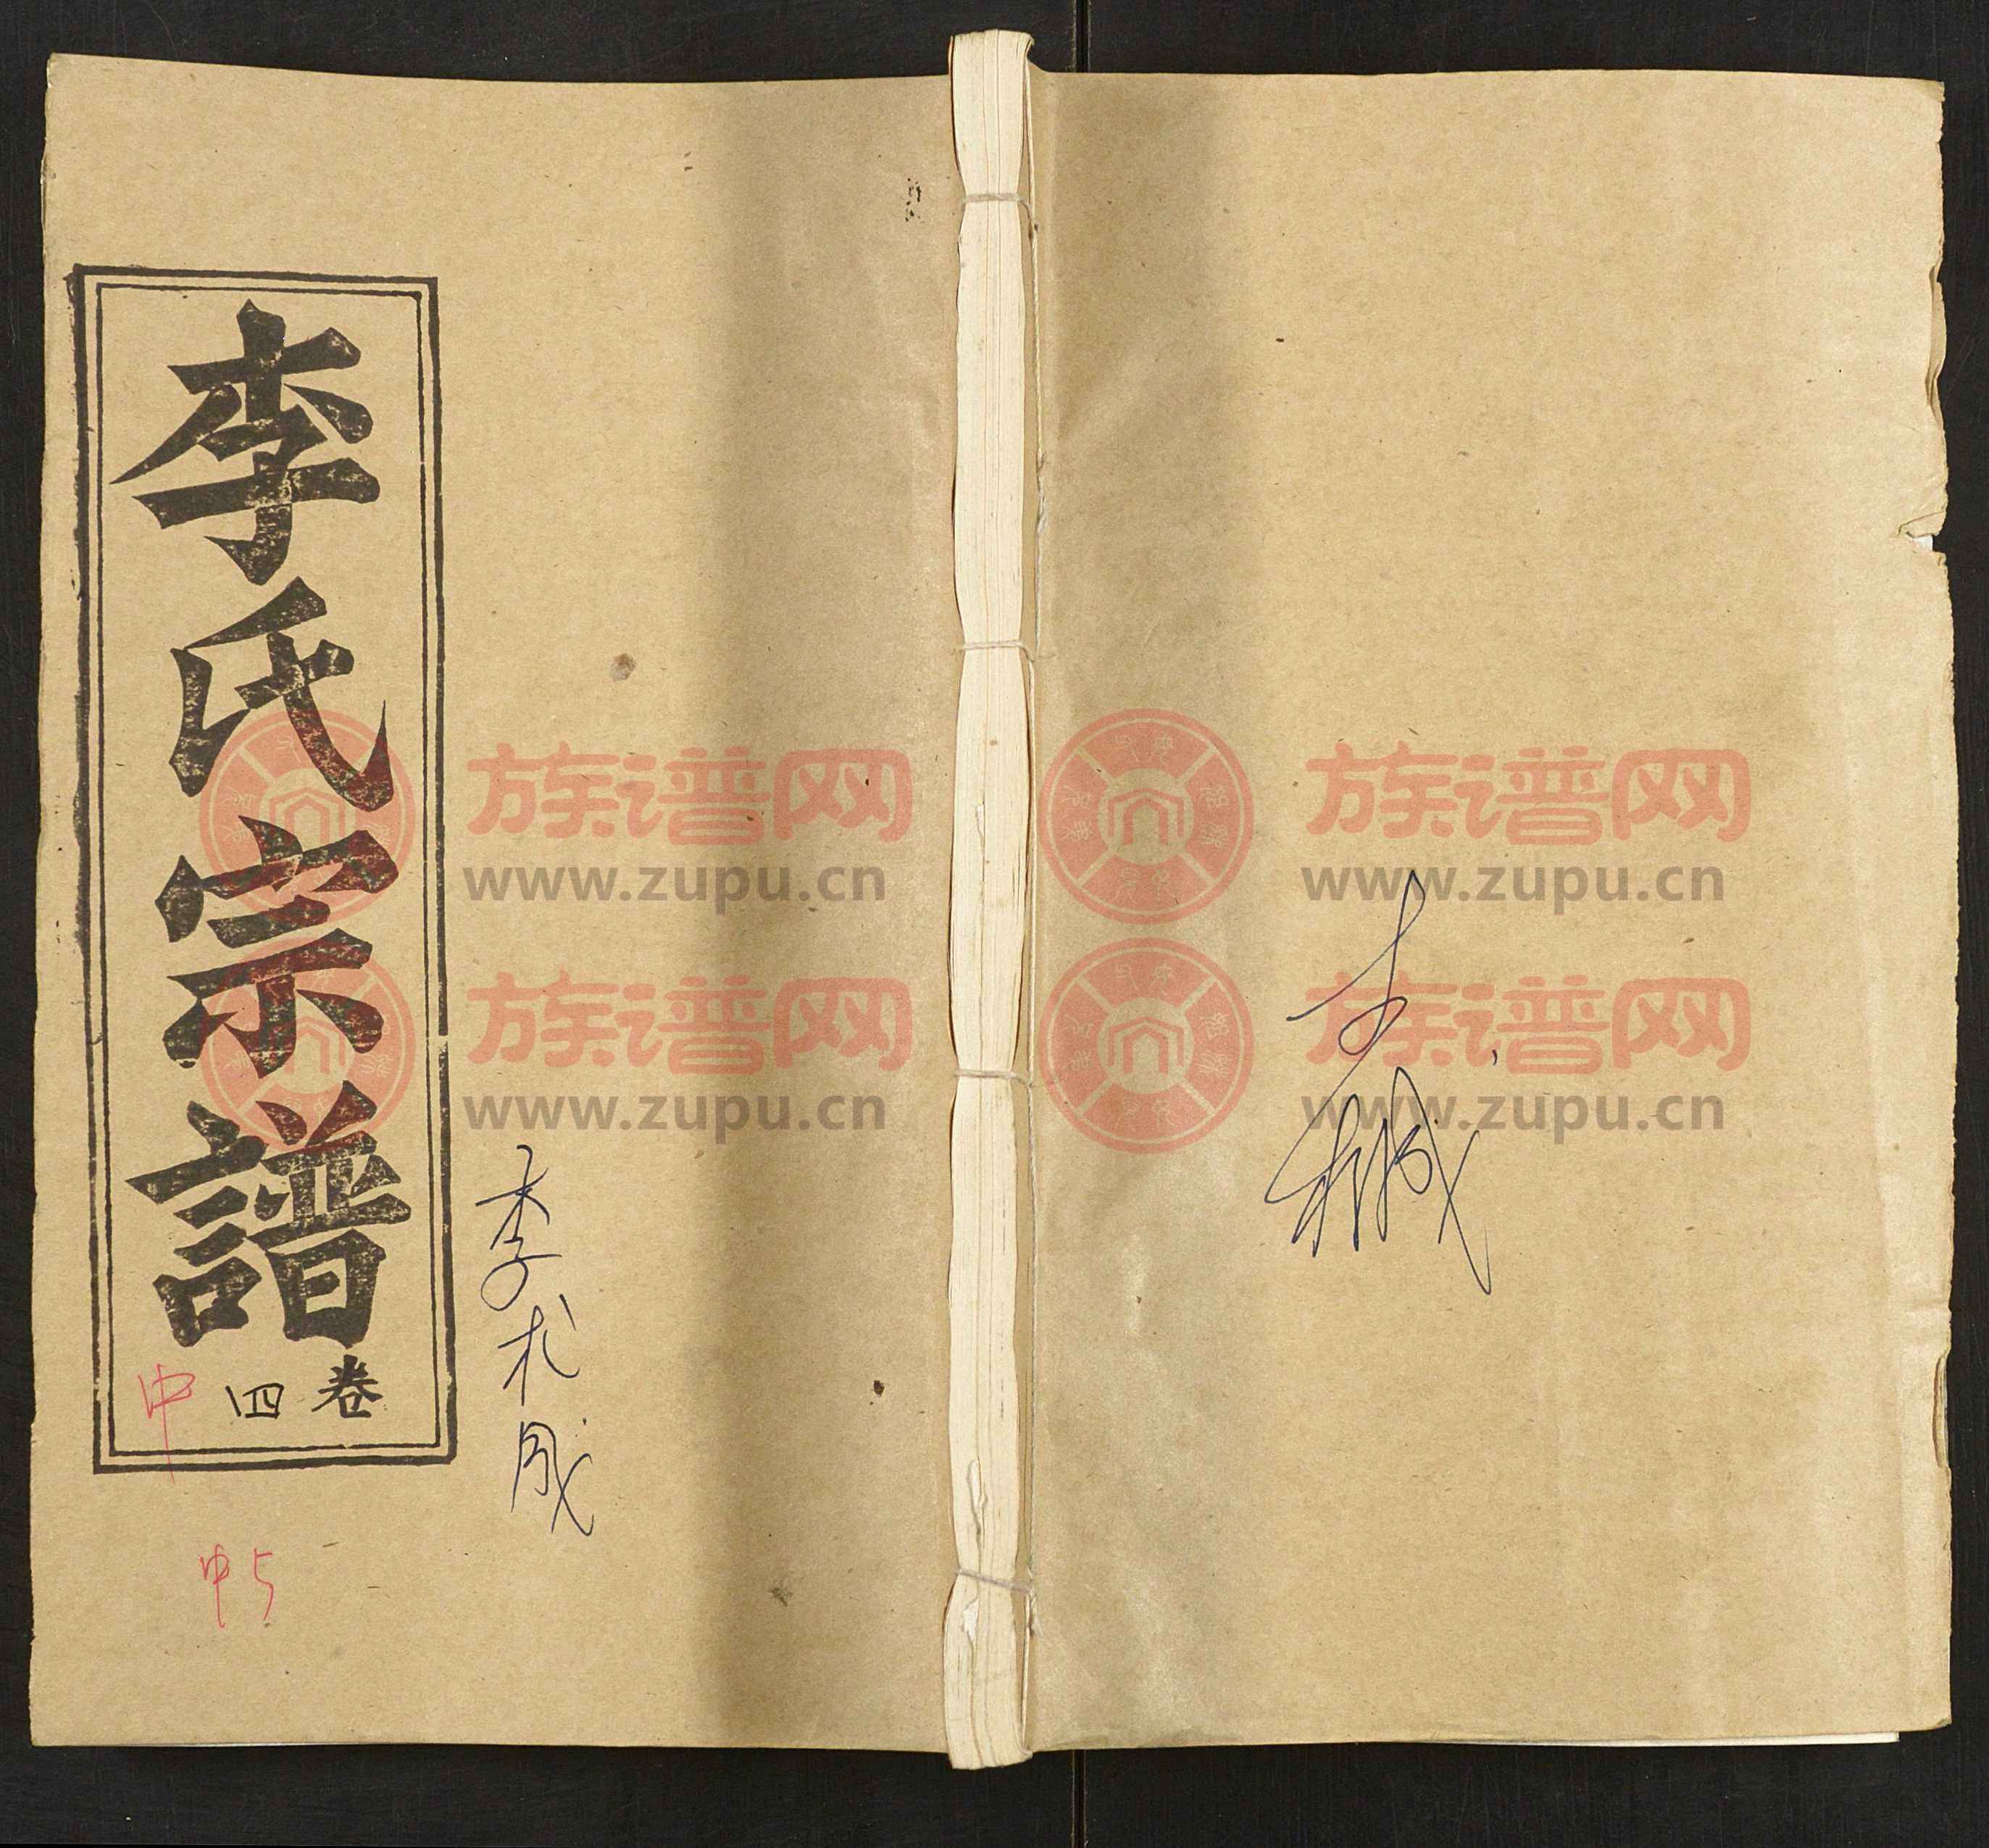 李氏宗譜
卷四
中
中5
李木成
族谱网
www.zupu.cn
族谱网
www.zupu.cn
族谱网
www.zupu.cn
族谱网
www.zupu.cn